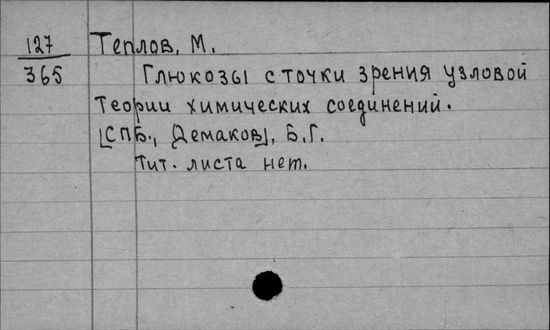 127
365
Теплов, М.
Глюкозы с точки зрения узловой
теории химических соединений.
[СПБ., Демаков], Б.Г.
Тит. листа нет.